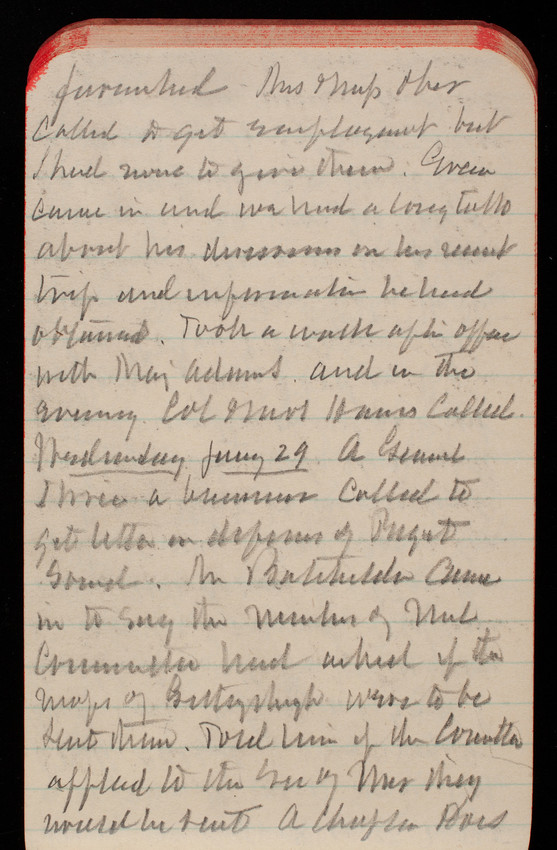 furnished Mrs & Miss Ober
called to get employment but
I had none to give them. Green
came in and we had a long talk
about his discussions on his recent
trip and information he had
obtained. Took a walk after office
with Maj Adams. and in the
evening Col & Mrs Hains called.
Wednesday Jany 29 A Genl
a called to
get letter on defenses of Puget
Sound. Mr Batchelder came
in to say the Members of Mil
Committee had asked if the
maps of Gettysburgh were to be
sent them. Told him if the Comttee
applied to the Sec of War they
would be sent A Chaplin